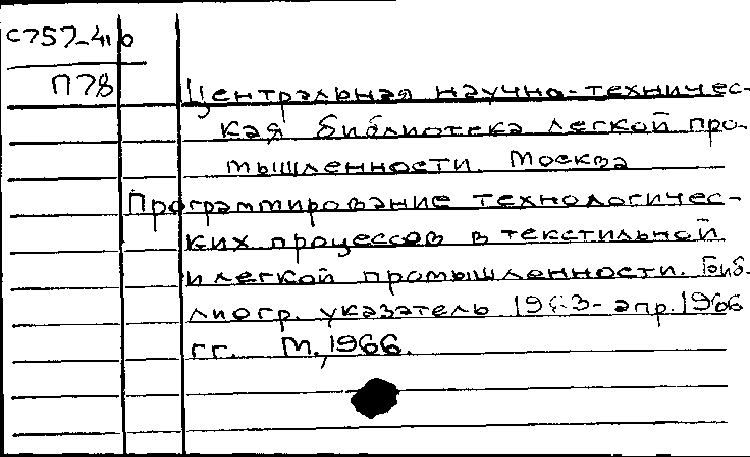 С757-416
П78
Центральная научно-техничес-
кая библиотека легкой про-
мышленности. Москва
Программирование технологичес-
ких процессов в текстильной
и легкой промышленности. Биб-
лиогр. указатель 1963-апр.1966
гг. М., 1966.